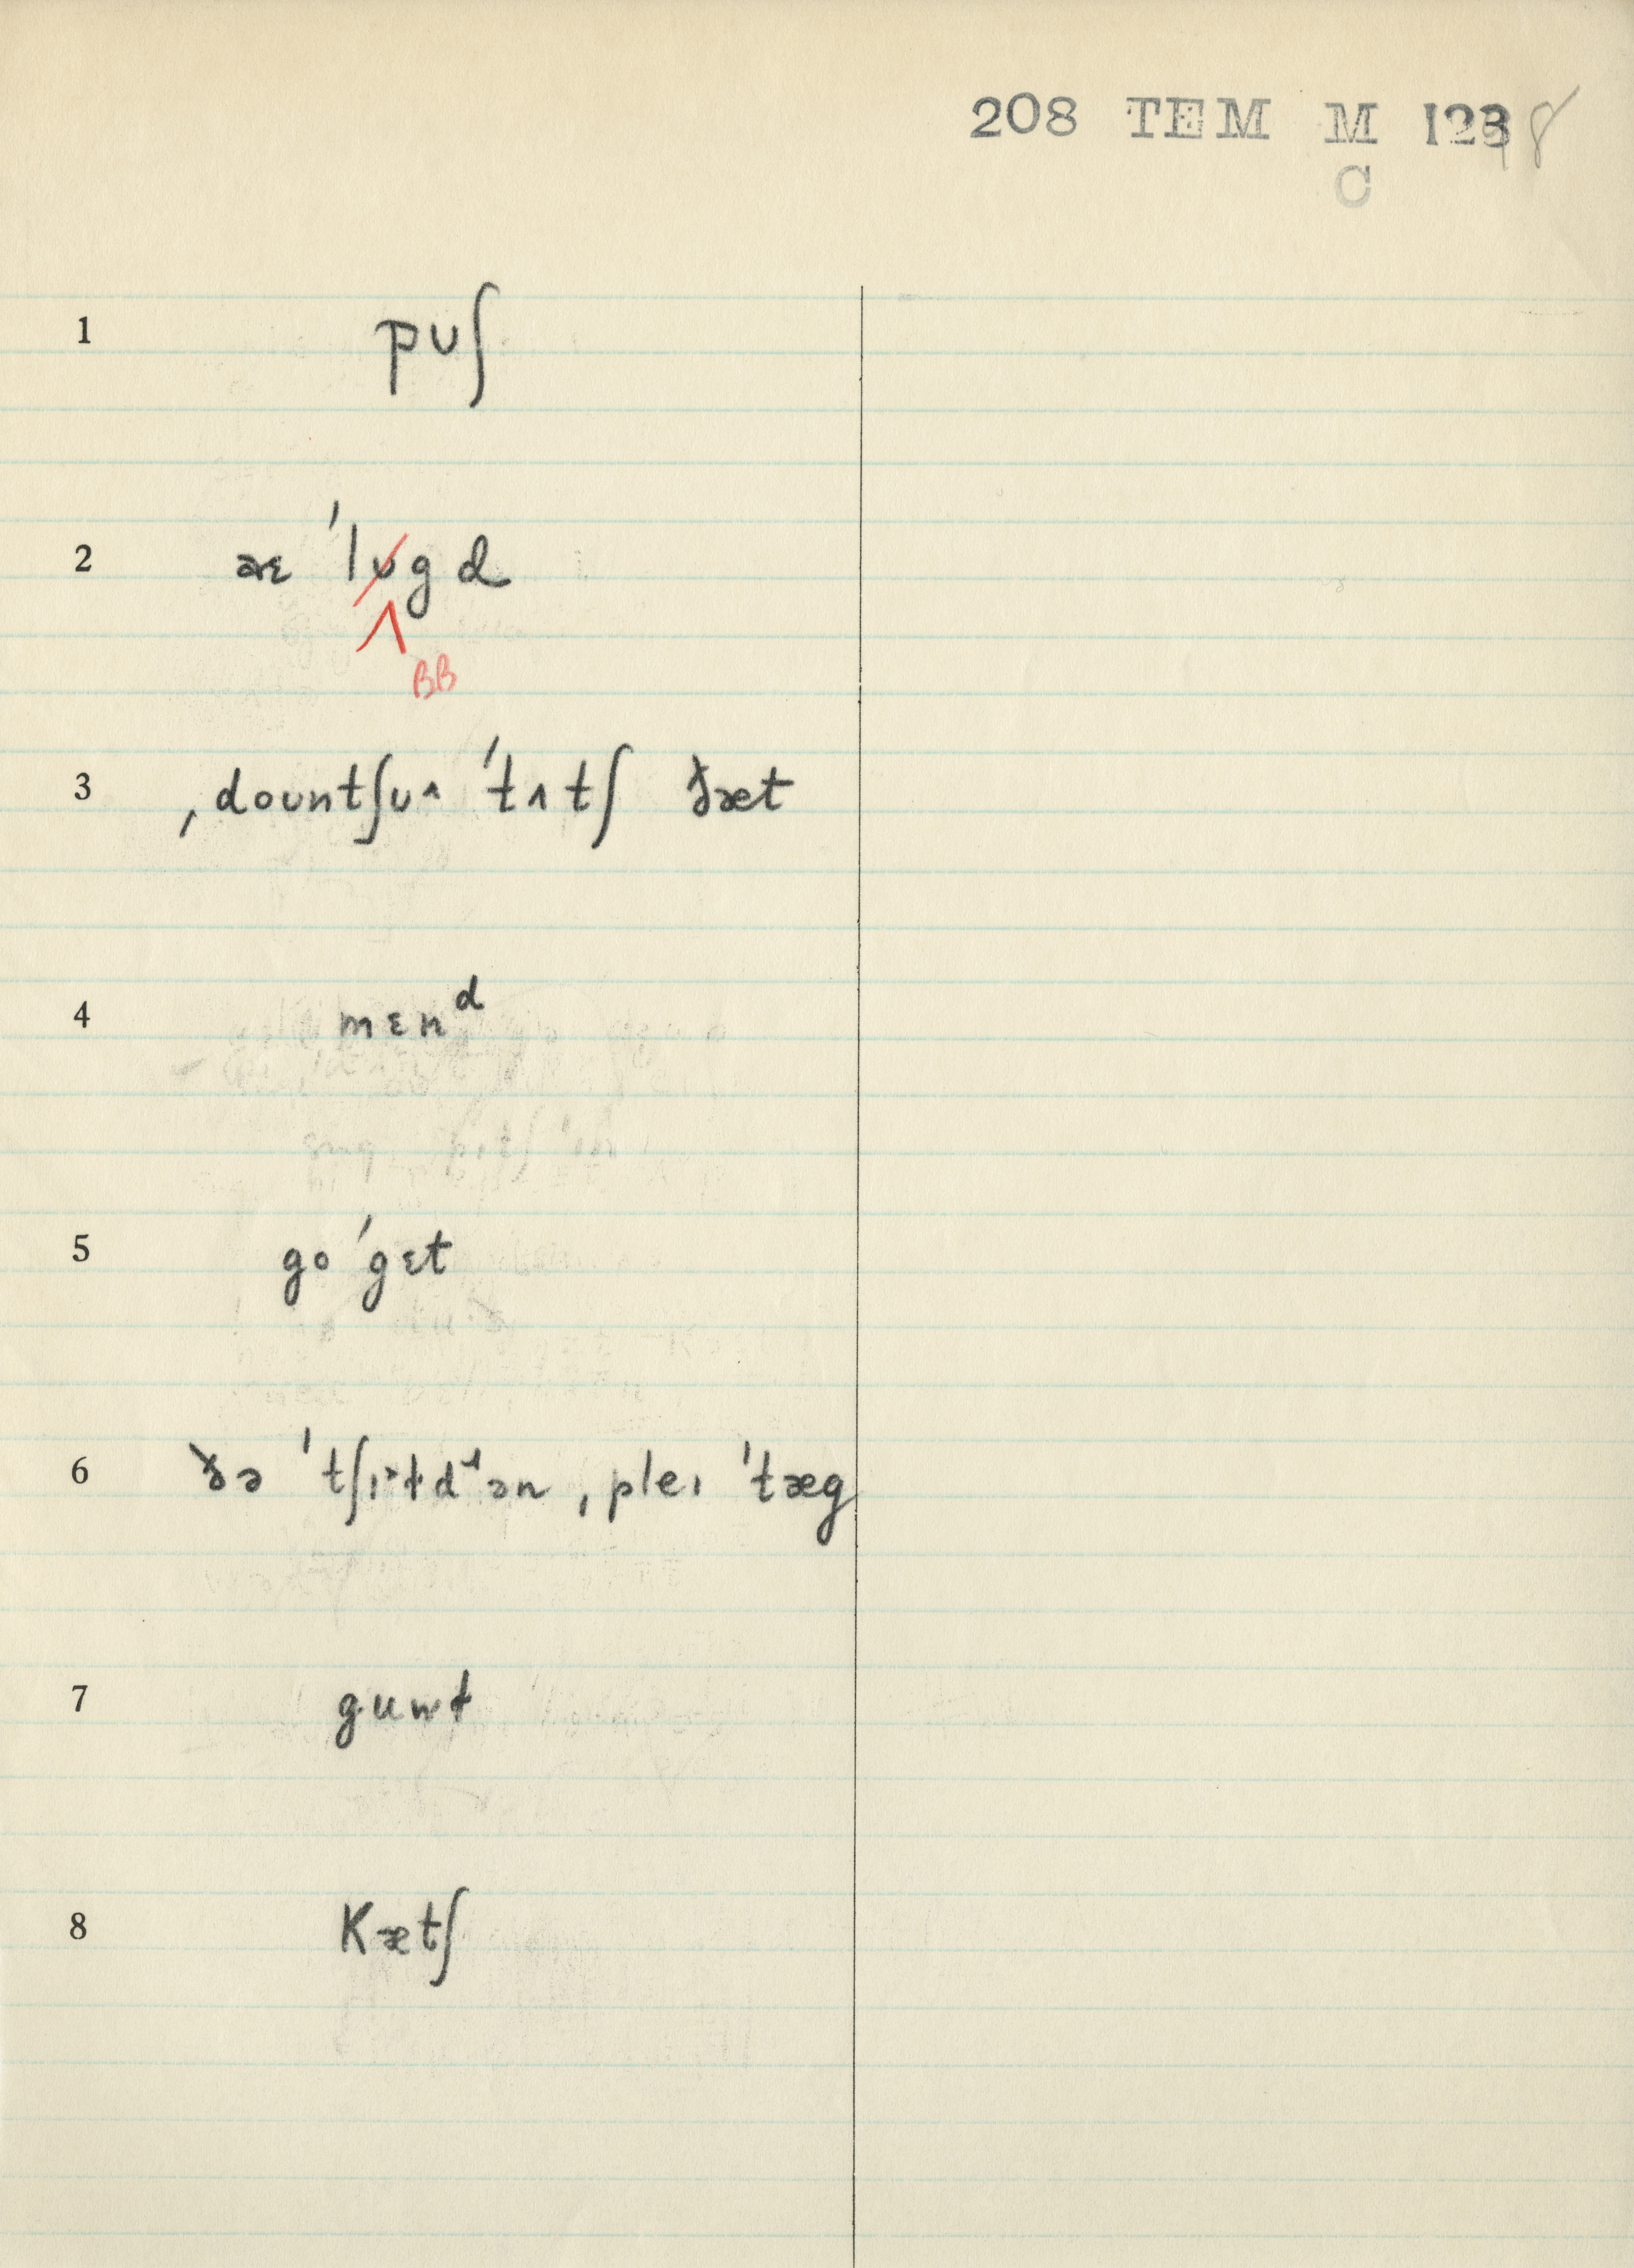 208 TEM M 1238
C
1 pʊʃ
2 æɛ ˈlʊgd
ʌ
BB
3 ˌdoʊntʃʊ^ ˈtʌtʃ ðæt
4 mɛnᵈ
5 go ˈgɛt
6 ðə ˈtʃɪ˃ɫdɹən ˌpleɪ ˈtæg
7 guwɫ
8 Kætʃ